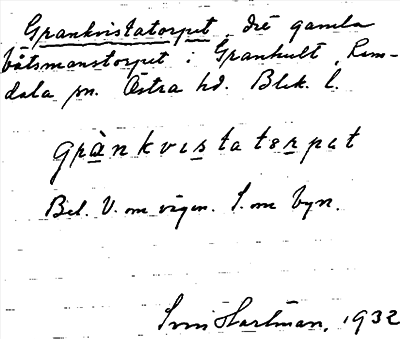 Grankvistatorpet, det gamla
båtsmanstorpet i Grankult, Ram-
dala sn. Östra hd. Blek. l.
grànkvistatərpət
Bel. V. om vägen. S. om byn.
Hartman, 1932